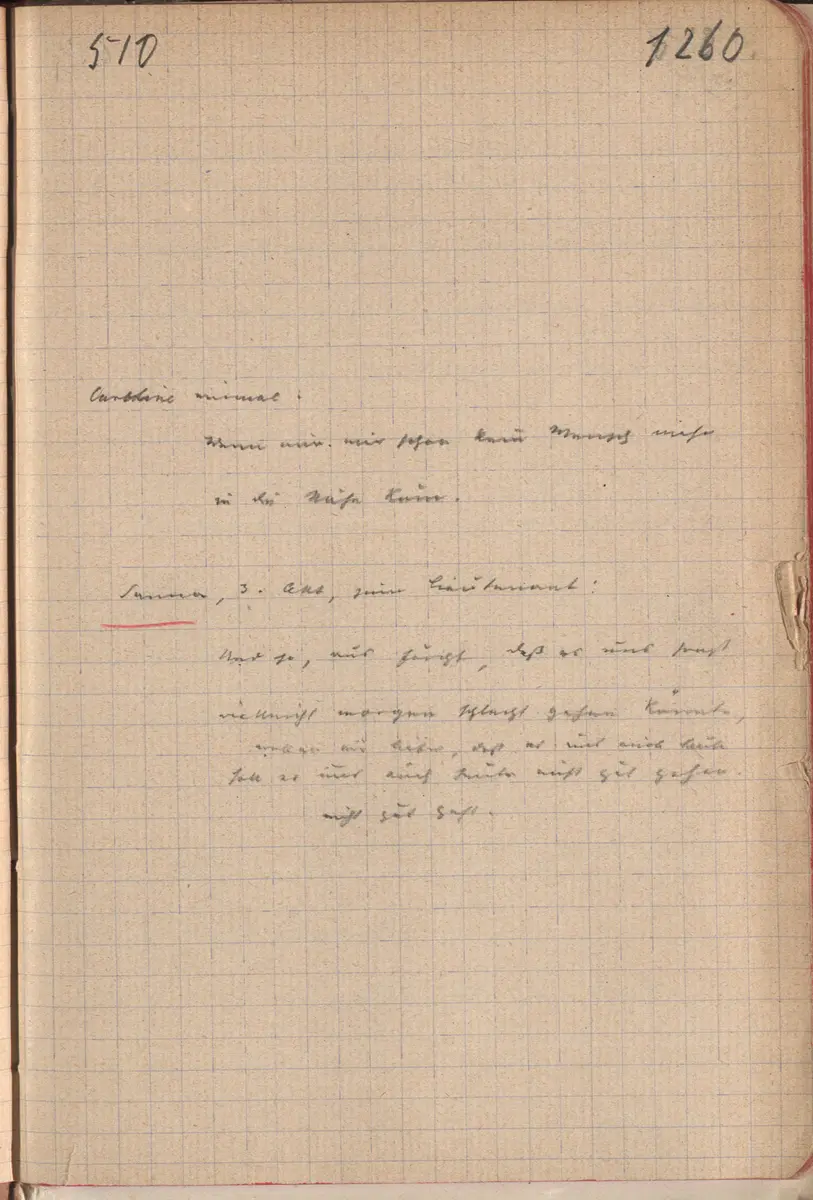 510 1260
Caroline einmal:
Wenn nur mir schon kein Mensch mehr
in die Nähe käm.
Sanna, 3. Akt, zum Lieutenant:
Und so, aus Furcht, daß es uns sonst
vielleicht morgen schlecht gehen könnte,
wollen wir lieber, daß es uns auch heute
soll es uns auch heute nicht gut gehen.
nicht gut geht.